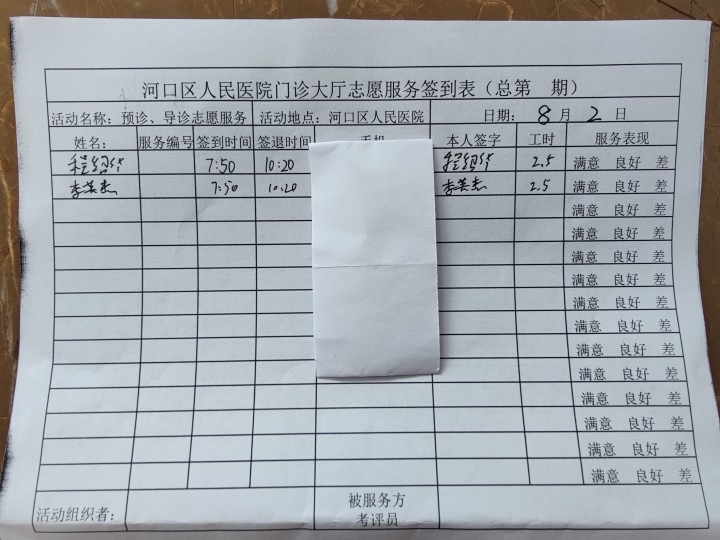 河口区人民医院门诊大厅志愿服务签到表（总第 期）
活动名称：预诊、导诊志愿服务 活动地点：河口区人民医院 日期：8月2日
姓名： 服务编号 签到时间 签退时间 手机 本人签字 工时 服务表现
7:50 10:20 2.5 满意 良好 差
7:50 10:20 2.5 满意 良好 差
满意 良好 差
满意 良好 差
满意 良好 差
满意 良好 差
满意 良好 差
满意 良好 差
满意 良好 差
满意 良好 差
满意 良好 差
满意 良好 差
满意 良好 差
满意 良好 差
活动组织者： 被服务方
考评员